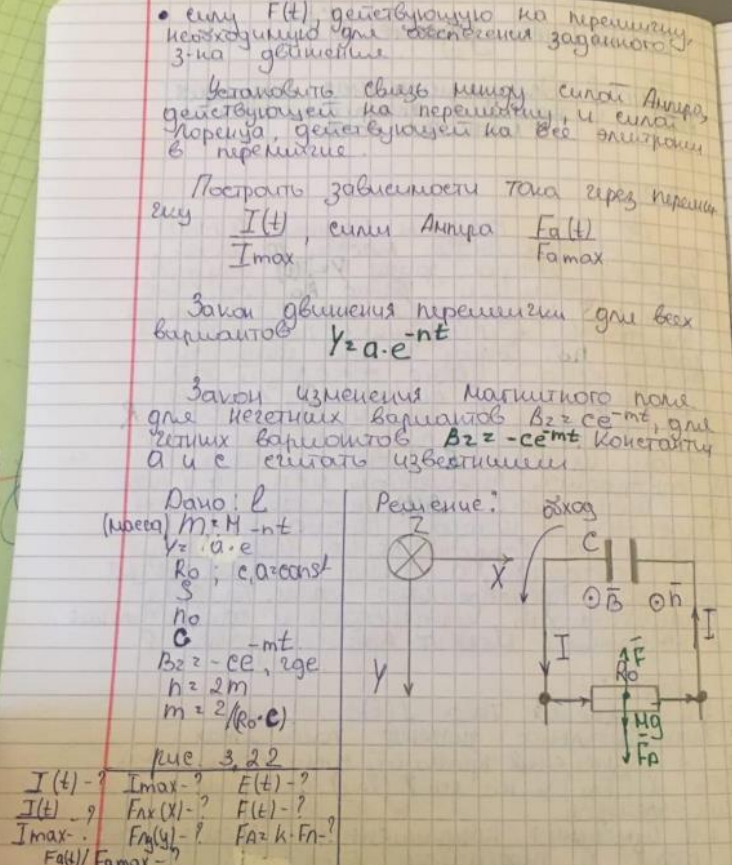 • силу F(t), действующую на перемычку,
необходимую для обеспечения заданного
з-на движения
Установить связь между силой Ампера,
действующей на перемычку, и силой
Лоренца, действующей на все электроны
в перемычке.
Построить зависимости тока через перемы-
чку I(t)/Imax, силы Ампера Fa(t)/Famax
Закон движения перемычки для всех
вариантов y=a·e^-nt
Закон изменения магнитного поля
для нечетных вариантов Bz=ce^-mt, для
четных вариантов Bz=-ce^-mt. Константы
a и c считать известными.
Дано: l
(масса) m=M
y=a·e^-nt
R0; c,a=const
S
n0
C
Bz=-ce^-mt, где
n=2m
m=2/(R0·C)
рис. 3,22
I(t)-? Imax-? E(t)-?
I(t)/Imax-? Fлx(x)-? F(t)-?
Fлy(y)-? FA=k·Fл-?
Fa(t)/Famax-?
Решение:
обход
Z
X
Y
C
B
n
I
I
F
R0
Mg
FA